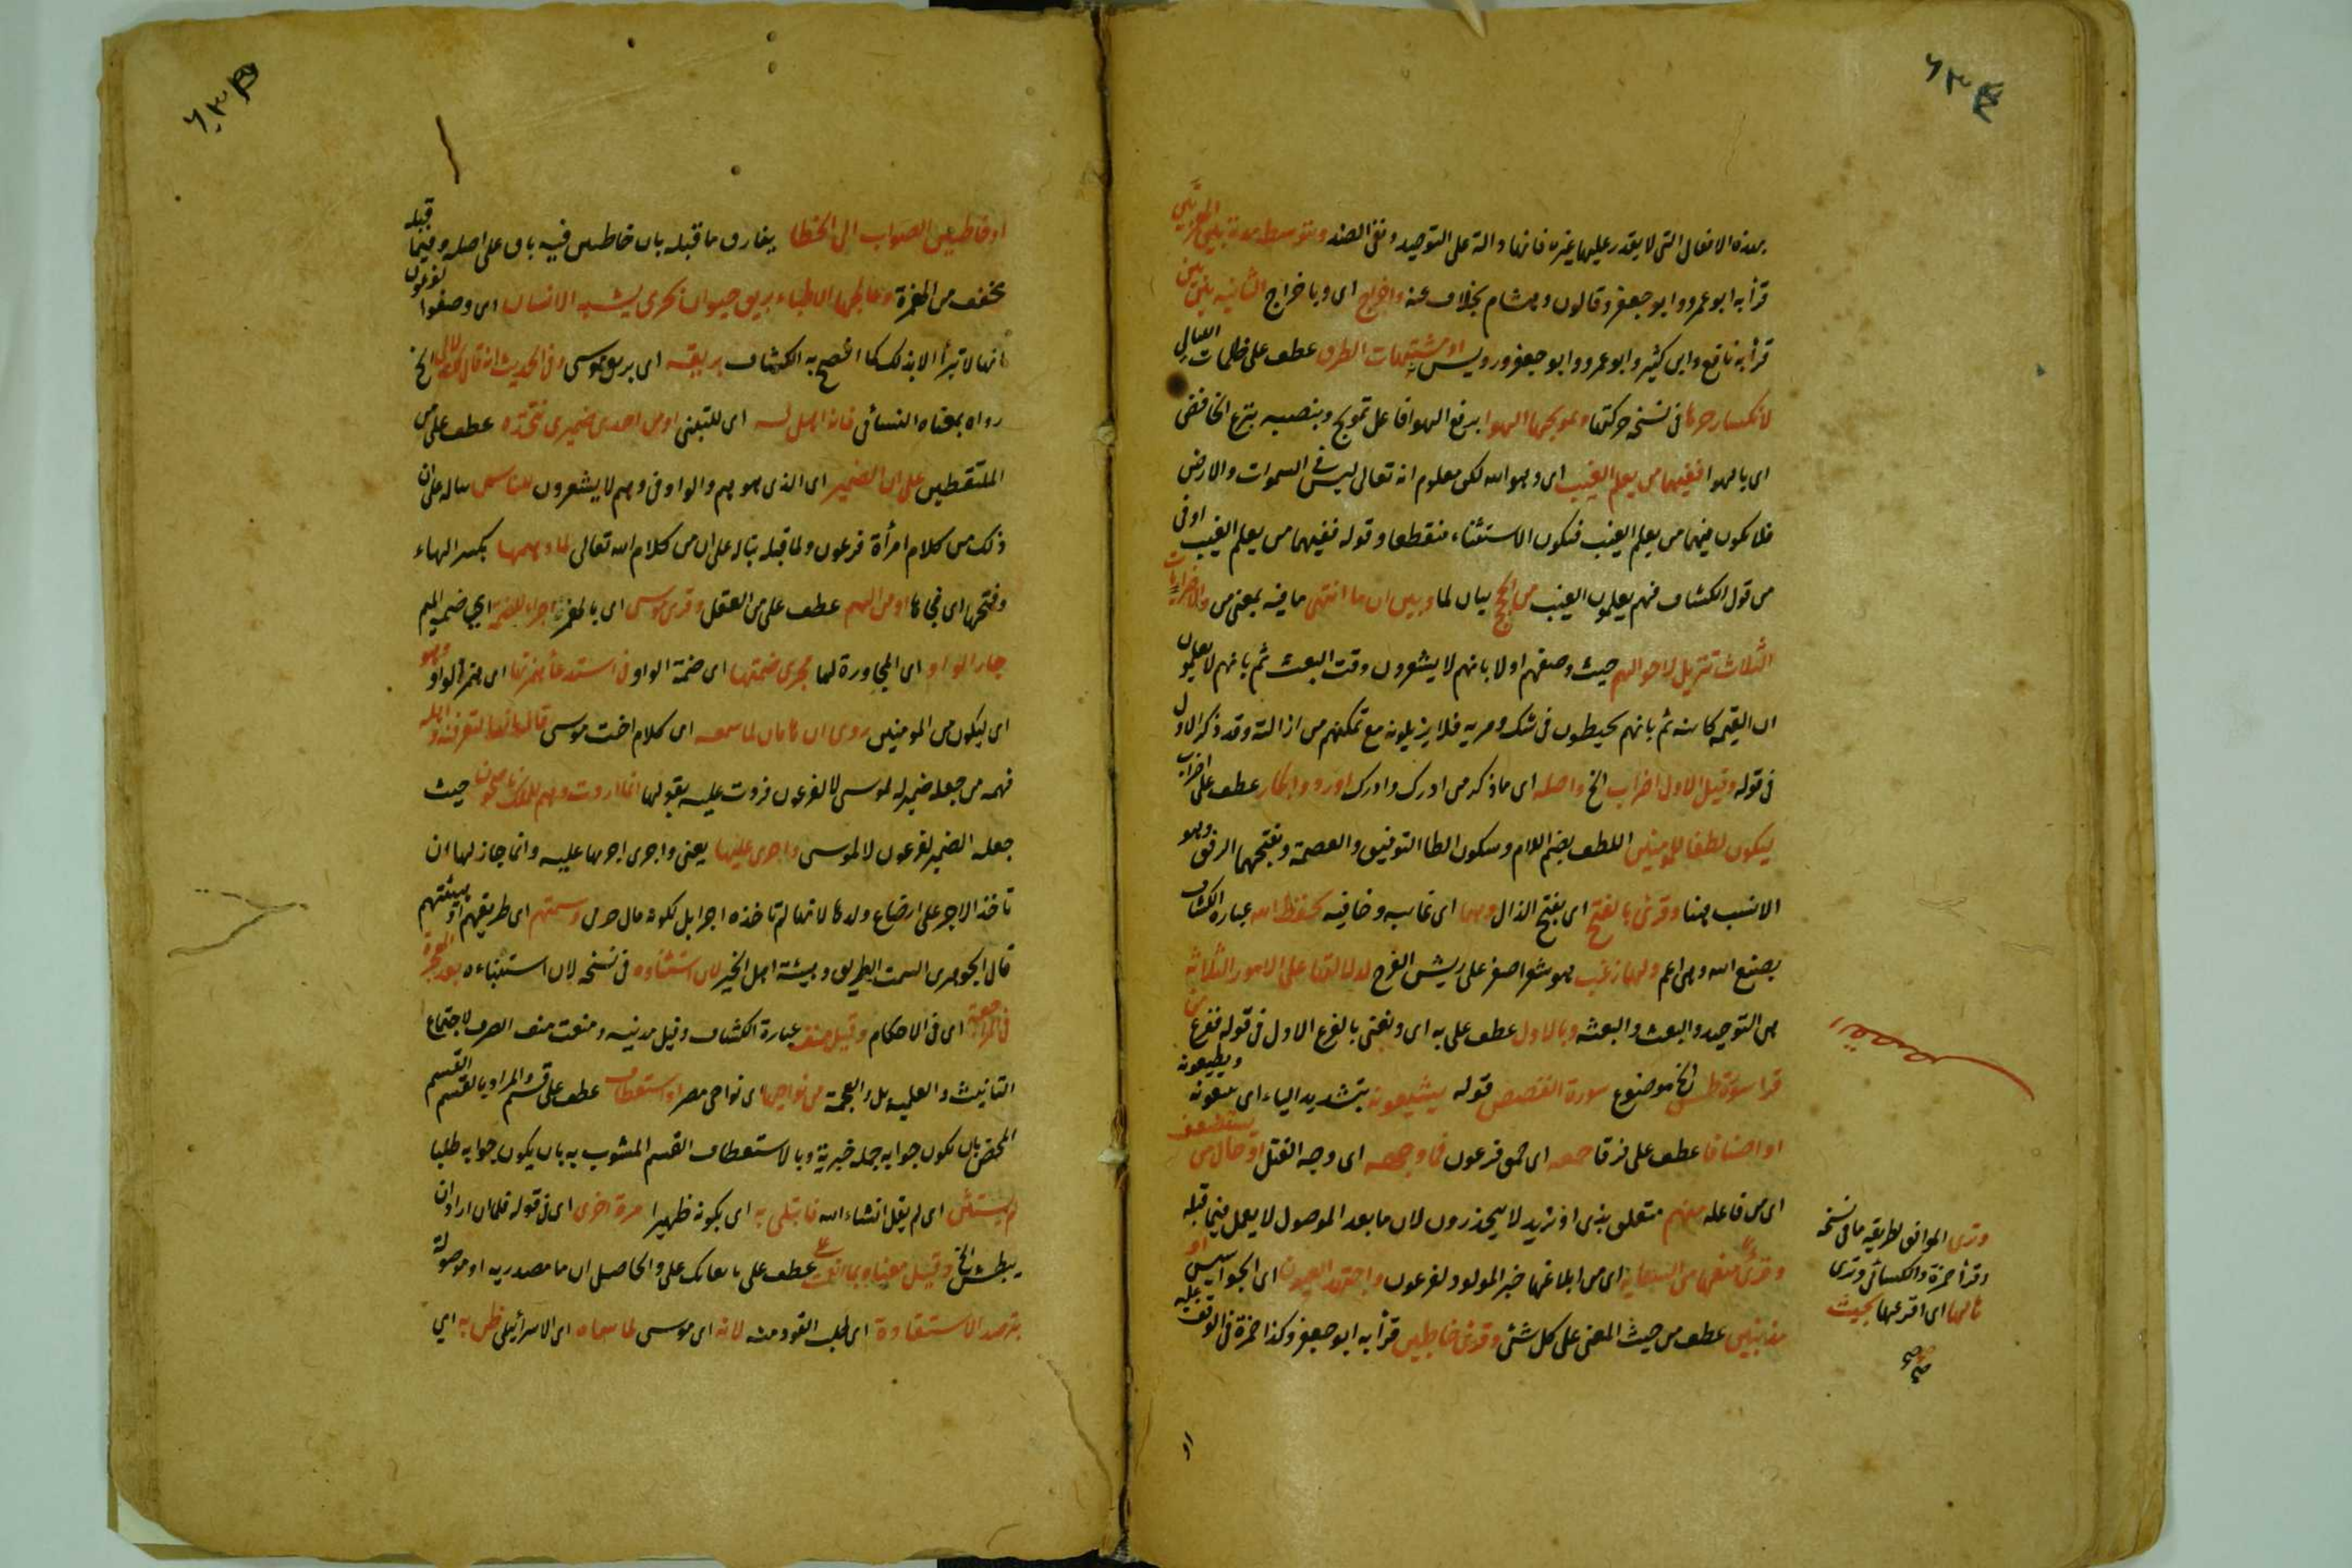 بهذه الافعال التى لا يقدر عليها غيره فانها دالة على التوحيد ونفى الضد وبتوسط مدة بين الهمزتين
قرأ به ابو عمرو وابو جعفر وقالون وهشام بخلاف عنه واخراج اى وباخراج الثانية بين بين
قرأ به نافع وابن كثير وابو عمرو وابو جعفر ورويس او مشتبهات الطرق عطف على ظلمات الليالى
لانكسار حرها فى نسخة حركتها وتمويجها الهوا برفع الهوا فاعل تمويج وبنصبه بنزع الخافض
اى بالهوا ففيهما من يعلم الغيب اى وهو الله لكن معلوم انه تعالى ليس فى السموات والارض
فلا يكون فيهما من يعلم الغيب فيكون الاستثناء منقطعا وقوله ففيهما من يعلم الغيب اوفى
من قول الكشاف فهم يعلمون الغيب من الحجج بيان لما وبين ان ما انتهى ما فيه بمعنى من والاضرابات
الثلاث تنزيل لاحوالهم حيث وصفهم اولا بانهم لا يشعرون وقت البعث ثم بانهم لا يعلمون
ان القيمة كائنة ثم بانهم يخبطون فى شك ومرية فلا يزيلونه مع تمكنهم من ازالته وقد ذكر الاول
فى قوله وقيل الاول اضراب الخ واصله اى ما ذكر من ادرك وادرك او رد وانكار عطف على اضراب
ليكون لطفا للمومنين اللطف بضم اللام وسكون الطا التوفيق والعصمة وبفتحهما الرفق وهو
الانسب هنا وقرئ بالفتح اى بفتح الذال وهما اى غائبه وخافيه كحفظ الله عبارة الكشاف
بصنع الله وهى اعم ولها زغب هو شعر اصفر على ريش الفرخ لدلالتها على الامور الثلاثة
هى التوحيد والبعث والبعثه وبالاول عطف على به اى ونعنى بالفزع الاول فى قوله ففزع من
قرا سورة طس الخ موضوع سورة القصص قوله يشيعونه بتشديد الياء اى يتبعونه ويطيعونه
او اصنافا عطف على فرقا حمقه اى حمق فرعون فما وجهه اى وجه القتل او حال من يستضعف
اى من فاعله منهم متعلق بنرى اذ نريد لا بيحذرون لان ما بعد الموصول لا يعمل فيما قبله
اى من ابلاغها خبر المولود لفرعون واجتهد العيون اى الجواسيس او
مذنبين عطف من حيث المعنى على كل شئ وقرئ خاطين قرأ به ابو جعفر وكذا حمزة فى الوقف عليه
ونرى الموافق لطريقه ما فى نسخة
وقرأ حمزة والكسائى ونرى
او
او خاطين الصواب الى الخطا يفارق ما قبله بان خاطين فيه باق على اصله وفيما قبله
مخفف من الهمزة وعالجها الاطباء بريق حيوان بحرى يشبه الانسان اى وصفوا لفرعون
انها لا تبرأ الا بذلك كما افصح به الكشاف بريقه اى بريق موسى وفى الحديث انه قال لك لا لى الخ
رواه بمعناه النسائى فانه اهل له اى للتبنى او من احدى ضميرى نتخذه عطف على من
الملتقطين على ان الضمير اى الذى هو هم والواو فى وهم لا يشعرون للناس بناء له على ان
ذلك من كلام امرأة فرعون ولما قبله بناله على ان من كلام الله تعالى لما دهمها بكسر الهاء
وفتحها اى فجاها او من الهم عطف على من العقل وقرئ موسى اى بالهمزة اجراء للضمة اى ضمة الميم
جار الواو اى المجاورة لها مجرى ضمتها اى ضمة الواو فى استدعا همزتها اى همزة الواو وهو
اى ليكون من المومنين روى ان هامان لما سمعه اى كلام اخت موسى قال انها لتعرفه واهله
فهمه من جعله ضمير له لموسى لا لفرعون فردت عليه بقولها انما اردت وهم للملك ناصحون حيث
جعله الضمير لفرعون لا لموسى واجرى عليها يعنى واجرى اجرها عليه وانما جاز لها ان
تاخذ الاجر على ارضاع ولدها لانها لم تاخذه اجرا بل لكونه مال حربى وسمتهم اى طريقهم او هيئتهم
قال الجوهرى السمت الطريق وهيئة اهل الخير لان استثناوه فى نسخة لان استنباءه بعد الهجرة
فى المراجعة اى فى الاحكام وقيل منف عبارة الكشاف وقيل مدينة ومنعت منف الصرف لاجتماع
التانيث والعلمية بل والعجمة من نواحيها اى نواحى مصر او استعطاف عطف على قسم والمراد بالقسم القسم
المحض بان يكون جوابه جملة خبرية وبالاستعطاف القسم المشوب به بان يكون جوابه طلبا
لم يستثن اى لم يقل انشاء الله فابتلى به اى بكونه ظهيرا مرة اخرى اى فى قوله فلما ان اراد ان
يبطش الخ وقيل معناه بما انعمت عطف على والحاصل ان ما مصدرية او موصولة
يترصد الاستقادة اى طلب القود منه لانه اى موسى لما سماه اى الاسرائيلى ظن به اى